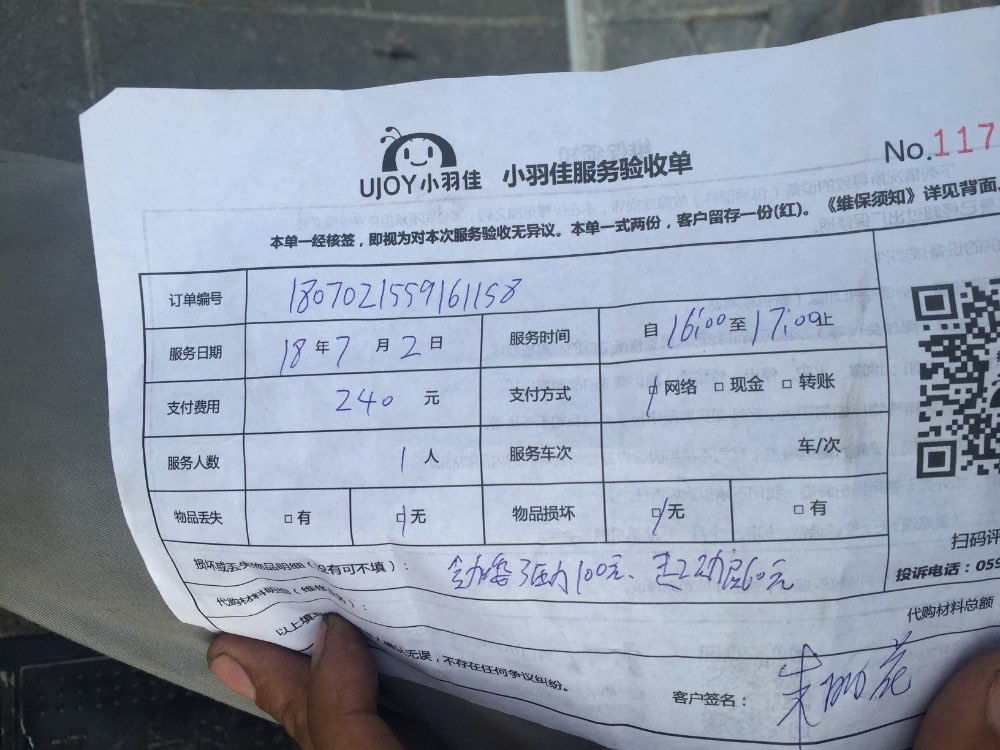 UJOY小羽佳 小羽佳服务验收单 No.117
本单一经核签，即视为对本次服务验收无异议。本单一式两份，客户留存一份(红)。《维保须知》详见背面。
订单编号 1807021559161158
服务日期 18 年 7 月 2 日 服务时间 自 16:00 至 17:00 止
支付费用 240 元 支付方式 网络 现金 转账
服务人数 1 人 服务车次 车/次
物品丢失 有 无 物品损坏 无 有
扫码评
损坏或丢失物品明细（没有可不填）： 100元、 60元
投诉电话：059
代购材料明细
代购材料总额
以上填
确认无误，不存在任何争议纠纷。
客户签名： 朱